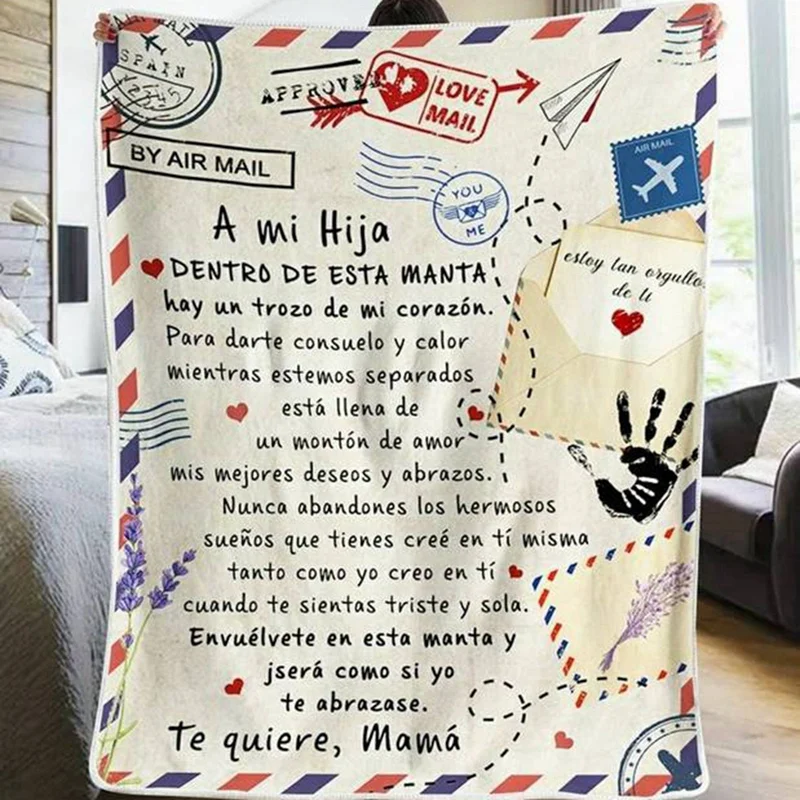 AIR MAIL
SPAIN
12345
APPROVED
LOVE
MAIL
BY AIR MAIL
AIR MAIL
YOU
ME
A mi Hija
DENTRO DE ESTA MANTA
hay un trozo de mi corazón.
Para darte consuelo y calor
mientras estemos separados
está llena de
un montón de amor
mis mejores deseos y abrazos.
Nunca abandones los hermosos
sueños que tienes creé en tí misma
tanto como yo creo en tí
cuando te sientas triste y sola.
Envuélvete en esta manta y
¡será como si yo
te abrazase.
Te quiere, Mamá
estoy tan orgullo
de ti